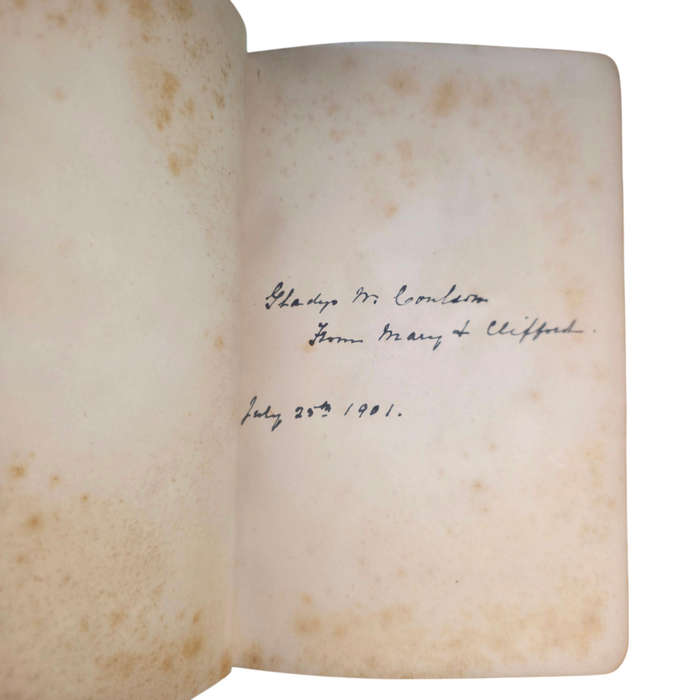 Gladys W. Coulson
From Mary & Clifford.
July 25th 1901.